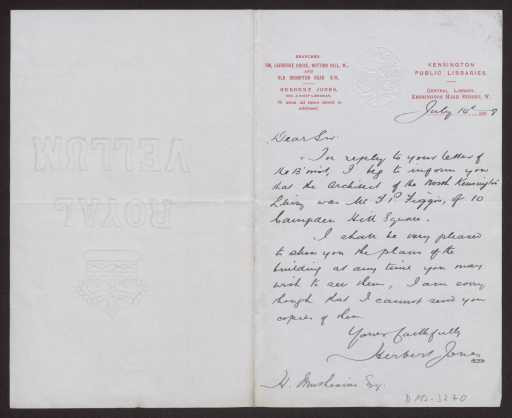 BRANCHES
LANCASTER ROAD, NOTTING HILL, W.,
AND
OLD BROMPTON ROAD S.W.
HERBERT JONES,
KENSINGTON
PUBLIC LIBRARIES.
CENTRAL LIBRARY,
KENSINGTON HIGH STREET, W.
July 14th 8
Dear Sir
In reply to your letter of
the 13 inst, I beg to inform you
that the architect of the North Kensington
Library was Mr T P Figgis, of 10
Campden Hill Square.
I shall be very pleased
to show you the plans of the
building at any time you may
wish to see them, I am sorry
though that I cannot send you
copies of them
Yours faithfully
Herbert Jones
H. Muthesius Esq.
ROYAL
VELLUM